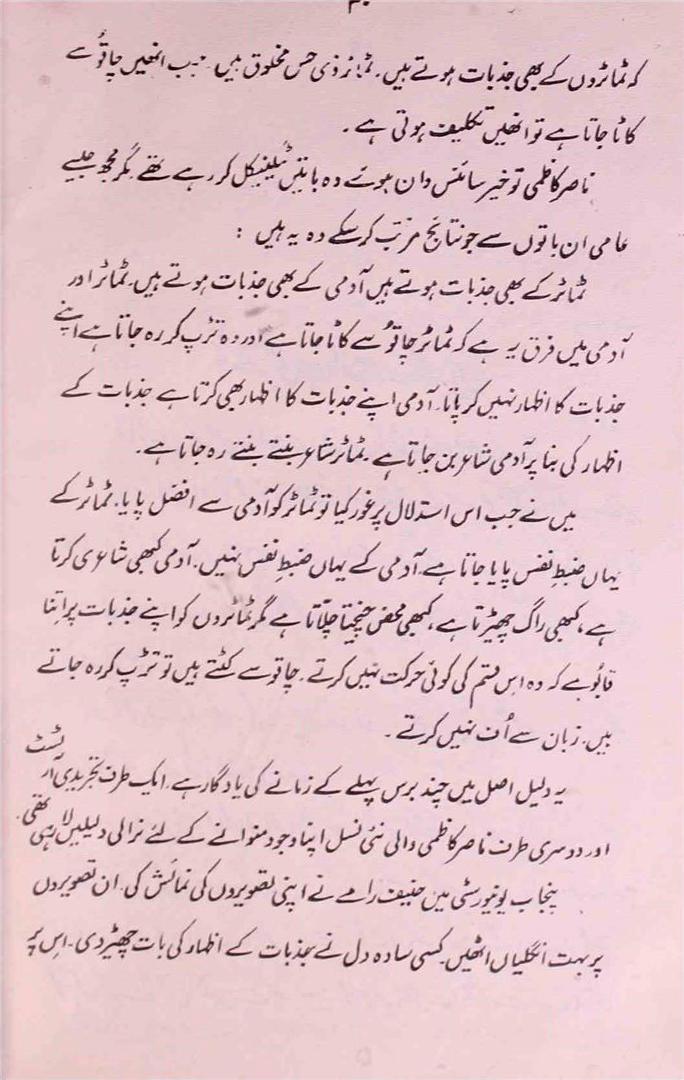 ۳۰
کہ ٹماٹروں کے بھی جذبات ہوتے ہیں۔ ٹماٹر ذی حس مخلوق ہیں۔ جب انھیں چاقو سے
کاٹا جاتا ہے تو انھیں تکلیف ہوتی ہے۔
ناصر کاظمی تو خیر سائنس دان ہوئے وہ باتیں ٹیکنیکل کر رہے تھے۔ مگر مجھ جیسے
عامی ان باتوں سے جو نتائج مرتب کر سکے وہ یہ ہیں:
ٹماٹر کے بھی جذبات ہوتے ہیں آدمی کے بھی جذبات ہوتے ہیں۔ ٹماٹر اور
آدمی میں فرق یہ ہے کہ ٹماٹر چاقو سے کاٹا جاتا ہے اور وہ تڑپ کر رہ جاتا ہے اپنے
جذبات کا اظہار نہیں کر پاتا۔ آدمی اپنے جذبات کا اظہار بھی کرتا ہے جذبات کے
اظہار کی بنا پر آدمی شاعر بن جاتا ہے۔ ٹماٹر شاعر بنتے بنتے رہ جاتا ہے۔
میں نے جب اس استدلال پر غور کیا تو ٹماٹر کو آدمی سے افضل پایا۔ ٹماٹر کے
یہاں ضبطِ نفس پایا جاتا ہے۔ آدمی کے یہاں ضبطِ نفس نہیں۔ آدمی کبھی شاعری کرتا
ہے، کبھی راگ چھیڑتا ہے، کبھی محض چیختا چلّاتا ہے مگر ٹماٹروں کو اپنے جذبات پر اِتنا
قابُو ہے کہ وہ اس قسم کی کوئی حرکت نہیں کرتے۔ چاقو سے کٹتے ہیں تو تڑپ کر رہ جاتے
ہیں۔ زبان سے اُف نہیں کرتے۔
یہ دلیل اصل میں چند برس پہلے کے زمانے کی یادگار ہے۔ ایک طرف تجریدی آرٹسٹ
اور دوسری طرف ناصر کاظمی والی نئی نسل اپنا وجود منوانے کے لئے نرالی دلیلیں لا رہی تھی۔
پنجاب یونیورسٹی میں حنیف رامے نے اپنی تصویروں کی نمائش کی۔ ان تصویروں
پر بہت انگلیاں اٹھیں۔ کسی سادہ دل نے جذبات کے اظہار کی بات چھیڑ دی۔ اس پر